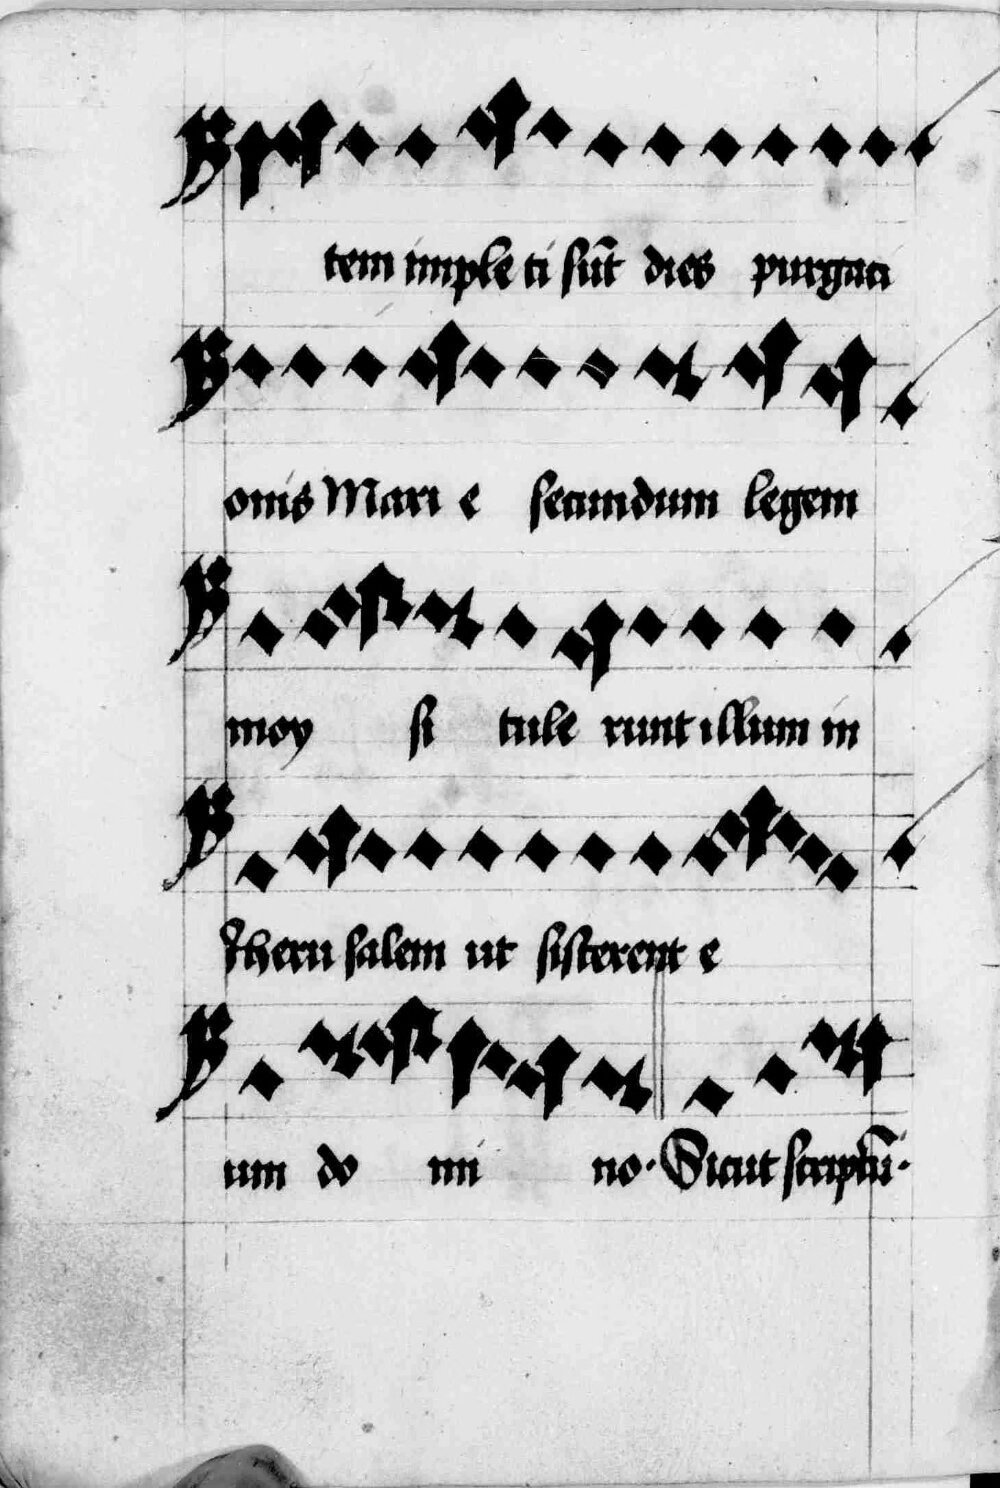 tem imple ti sūt dies purgaci
onis Mari e secundum legem
moy si tule runt illum in
Jheru salem ut sisterent e
um do mi no. Sicut scriptū.